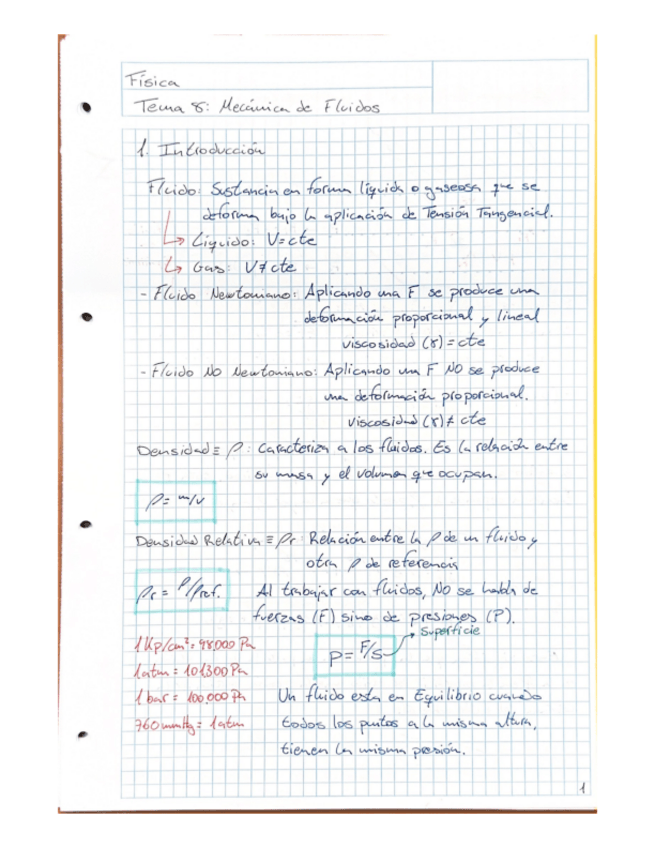 Física
Tema 8: Mecánica de Fluidos
1. Introducción
Fluido: Sustancia en forma líquida o gaseosa que se
deforma bajo la aplicación de Tensión Tangencial.
↳ Líquido: V=cte
↳ Gas: V≠cte
- Fluido Newtoniano: Aplicando una F se produce una
deformación proporcional y lineal
viscosidad (γ) = cte
- Fluido No Newtoniano: Aplicando una F NO se produce
una deformación proporcional.
viscosidad (γ) ≠ cte
Densidad ≡ ρ: Caracteriza a los fluidos. Es la relación entre
su masa y el volumen que ocupan.
ρ = m/v
Densidad Relativa ≡ ρr: Relación entre la ρ de un fluido y
otra ρ de referencia
ρr = ρ/ρref.
Al trabajar con fluidos, NO se habla de
fuerzas (F) sino de presiones (P).
P = F/S → Superficie
1 Kp/cm² = 98000 Pa
1 atm = 101300 Pa
1 bar = 100,000 Pa
760 mmHg = 1 atm
Un fluido esta en Equilibrio cuando
todos los puntos a la misma altura,
tienen la misma presión.
1